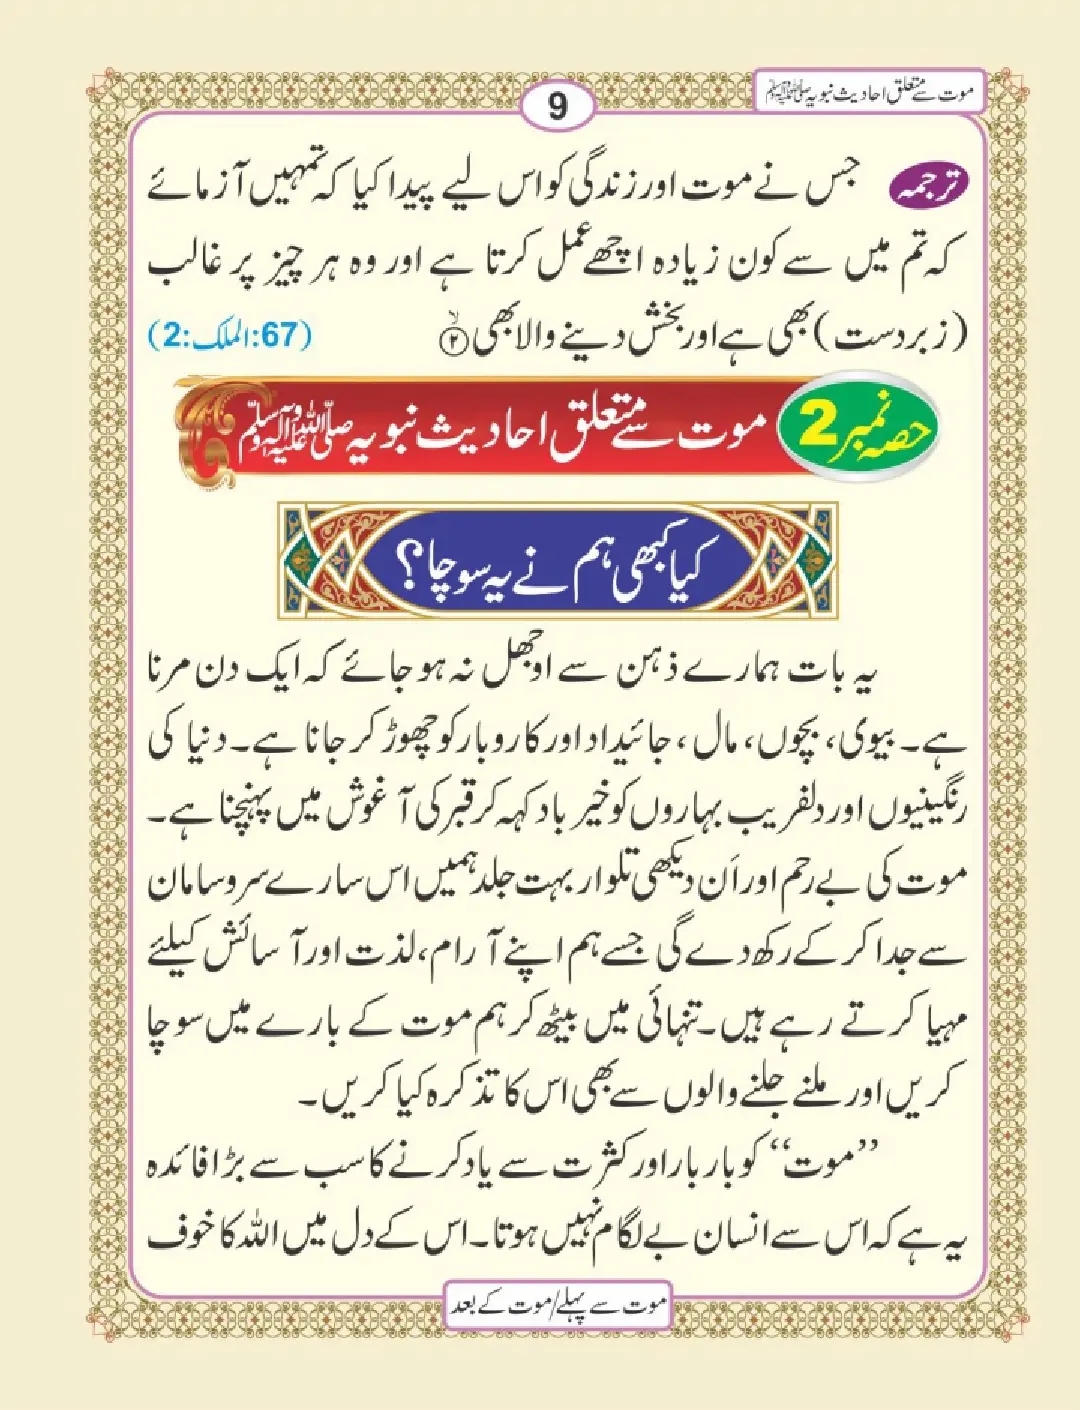 موت سے متعلق احادیث نبویہ ﷺ
9
ترجمہ جس نے موت اور زندگی کو اس لیے پیدا کیا کہ تمہیں آزمائے
کہ تم میں سے کون زیادہ اچھے عمل کرتا ہے اور وہ ہر چیز پر غالب
(زبردست) بھی ہے اور بخش دینے والا بھی ۲ (67:الملک:2)
حصہ نمبر 2 موت سے متعلق احادیث نبویہ صلی اللہ علیہ وآلہ وسلم
کیا کبھی ہم نے یہ سوچا؟
یہ بات ہمارے ذہن سے اوجھل نہ ہو جائے کہ ایک دن مرنا
ہے۔ بیوی، بچوں، مال، جائیداد اور کاروبار کو چھوڑ کر جانا ہے۔ دنیا کی
رنگینیوں اور دلفریب بہاروں کو خیر باد کہہ کر قبر کی آغوش میں پہنچنا ہے۔
موت کی بے رحم اور اَن دیکھی تلوار بہت جلد ہمیں اس سارے سروسامان
سے جدا کر کے رکھ دے گی جسے ہم اپنے آرام، لذت اور آسائش کیلئے
مہیا کرتے رہے ہیں۔ تنہائی میں بیٹھ کر ہم موت کے بارے میں سوچا
کریں اور ملنے جلنے والوں سے بھی اس کا تذکرہ کیا کریں۔
”موت“ کو بار بار اور کثرت سے یاد کرنے کا سب سے بڑا فائدہ
یہ ہے کہ اس سے انسان بے لگام نہیں ہوتا۔ اس کے دل میں اللہ کا خوف
موت سے پہلے/موت کے بعد